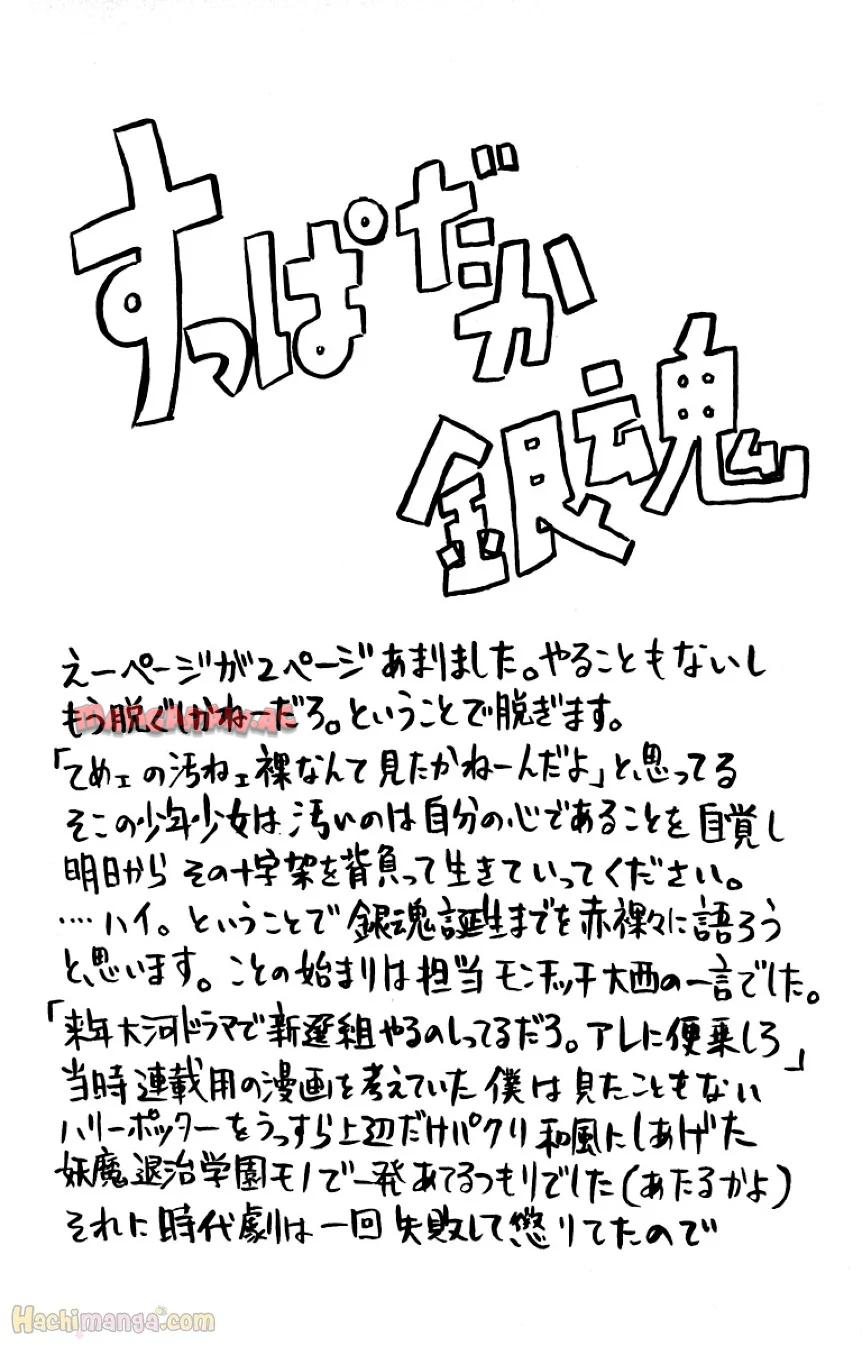 すっぱだか
銀魂
えーページが2ページあまりました。やることもないし
もう脱ぐしかねーだろ。ということで脱ぎます。
「てめェの汚ねェ裸なんて見たかねーんだよ」と思ってる
そこの少年少女は汚いのは自分の心であることを自覚し
明日からその十字架を背負って生きていってください。
‥‥ハイ。ということで銀魂誕生までを赤裸々に語ろう
と思います。ことの始まりは担当モンチッチ大西の一言でした。
「来年大河ドラマで新選組やるのしってるだろ。アレに便乗しろ」
当時連載用の漫画を考えていた僕は見たこともない
ハリーポッターをうっすら上辺だけパクり和風にしあげた
妖魔退治学園モノで一発あてるつもりでした(あたるかよ)
それに時代劇は一回失敗して懲りてたので
Hachimanga.com